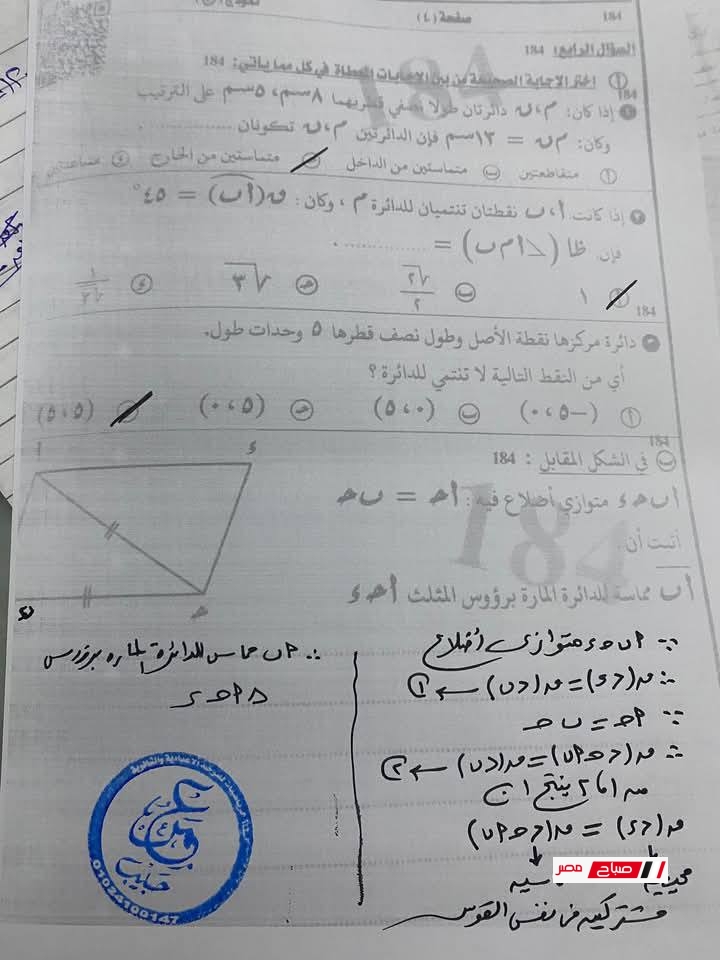 184
صفحة (٤)
السؤال الرابع: 184
أ اختر الإجابة الصحيحة من بين الإجابات المعطاة في كل مما يأتي: 184
184
١ إذا كان: م، ن دائرتان طولا نصفي قطريهما ٨ سم، ٥ سم على الترتيب
وكان: م ن = ١٣ سم فإن الدائرتين م، ن تكونان
أ متقاطعتين ب متماستين من الداخل متماستين من الخارج د متباعدتين
٢ إذا كانت أ، ب نقطتان تنتميان للدائرة م، وكان: ق(أب) = ٤٥°
فإن ظا (∠أ م ب) =
١ ب √٢/٢ جـ √٣ د ١/√٣
184
٣ دائرة مركزها نقطة الأصل وطول نصف قطرها ٥ وحدات طول.
أي من النقط التالية لا تنتمي للدائرة؟
أ (-٥، ٠) ب (٠، ٥) جـ (٥، ٠) (٥، ٥)
184
ب في الشكل المقابل: 184
أ ب جـ د متوازي أضلاع فيه: أ جـ = ب جـ
أثبت أن:
أب مماسة للدائرة المارة برؤوس المثلث أ جـ د
أ
د
جـ
ب
184
∵ أ ب جـ د متوازى أضلاع
∴ ق(∠د) = ق(∠ب) ← ①
∵ أ جـ = ب جـ
∴ ق(∠جـ أ ب) = ق(∠ب) ← ②
من ١، ٢ ينتج ان
ق(∠د) = ق(∠جـ أ ب)
محيطية
مشتركين فى نفس القوس
∴ أ ب مماس للدائرة المارة برؤوس
△ أ جـ د
صباح مصر
حبيب
01024100147